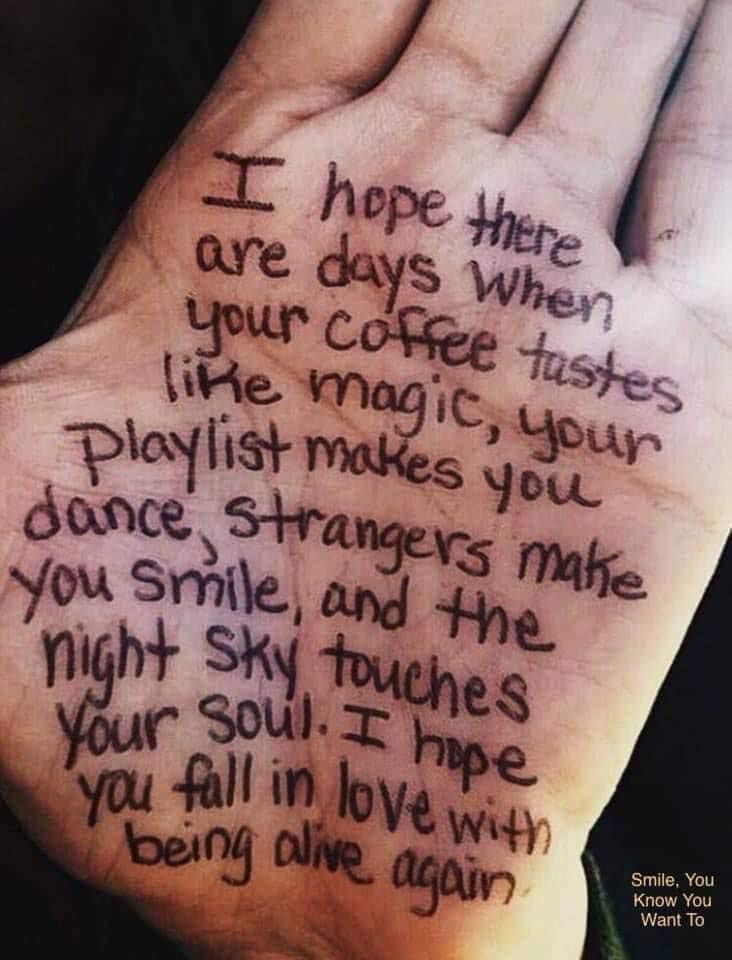 I hope there
are days when
your coffee tastes
like magic, your
playlist makes you
dance, strangers make
you smile, and the
night sky touches
your soul. I hope
you fall in love with
being alive again
Smile, You
Know You
Want To